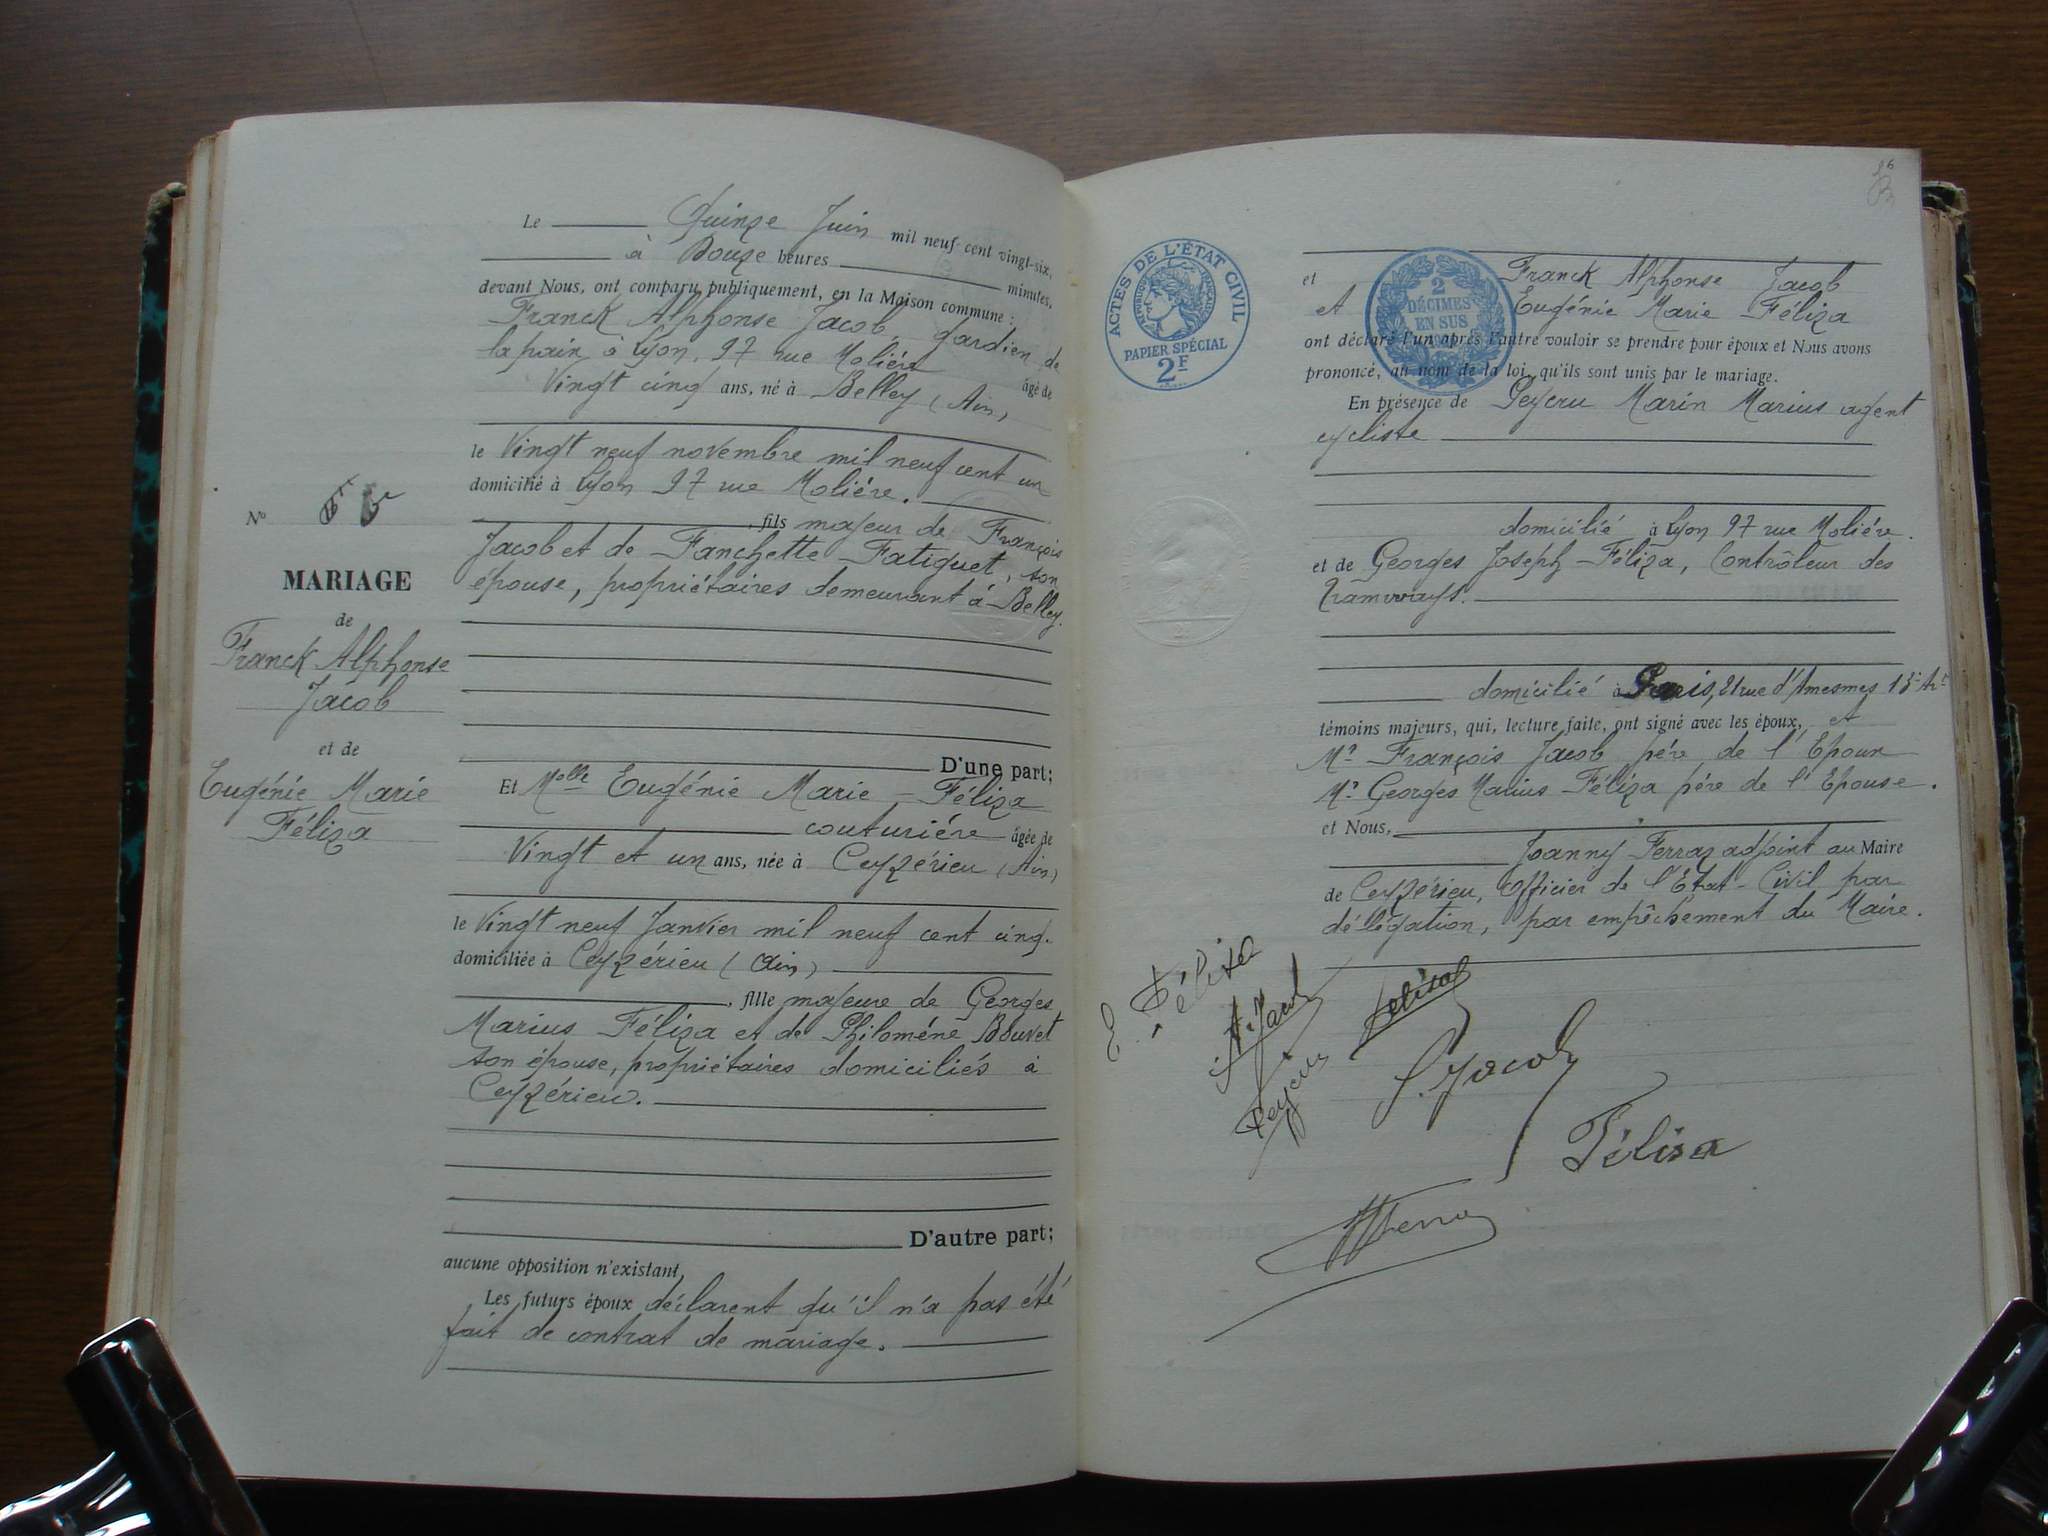 Le Quinze Juin mil neuf cent vingt-six,
à Douze heures minutes,
devant Nous, ont comparu publiquement, en la Maison commune :
Franck Alphonse Jacob, gardien de
la paix à Lyon, 97 rue Molière âgé de
Vingt cinq ans, né à Belley (Ain)
le Vingt neuf novembre mil neuf cent un
domicilié à Lyon 97 rue Molière.
, fils majeur de François
Jacob et de Fanchette Fatiguet, son
épouse, propriétaires demeurant à Belley.
D'une part;
Et Melle Eugénie Marie Féliza
couturière âgée de
Vingt et un ans, née à Ceyzérieu (Ain)
le Vingt neuf Janvier mil neuf cent cinq.
domiciliée à Ceyzérieu (Ain)
, fille majeure de Georges
Marius Féliza et de Philomène Bouvet
son épouse, propriétaires domiciliés à
Ceyzérieu.
D'autre part;
aucune opposition n'existant,
Les futurs époux déclarent qu'il n'a pas été
fait de contrat de mariage.
No
MARIAGE
de
Franck Alphonse
Jacob
et de
Eugénie Marie
Féliza
ACTES DE L'ÉTAT CIVIL
RÉPUBLIQUE FRANÇAISE
PAPIER SPÉCIAL
2F
2
DÉCIMES
EN SUS
et Franck Alphonse Jacob
et Eugénie Marie Féliza
ont déclaré l'un après l'autre vouloir se prendre pour époux et Nous avons
prononcé, au nom de la loi, qu'ils sont unis par le mariage.
En présence de Peycru Marin Marius agent
cycliste
domicilié à Lyon 97 rue Molière.
et de Georges Joseph Féliza, Contrôleur des
Tramways.
domicilié à Paris, 21 rue d'Amesmes 13e Art
témoins majeurs, qui, lecture faite, ont signé avec les époux, et
Mr François Jacob père de l'Epoux
Mr Georges Marius Féliza père de l'Epouse.
et Nous,
Joanny Ferraz adjoint au Maire
de Ceyzérieu, officier de l'Etat-Civil par
délégation, par empêchement du Maire.
E. Féliza
A. Jacob
Feliza
Peycru
F. Jacob
Féliza